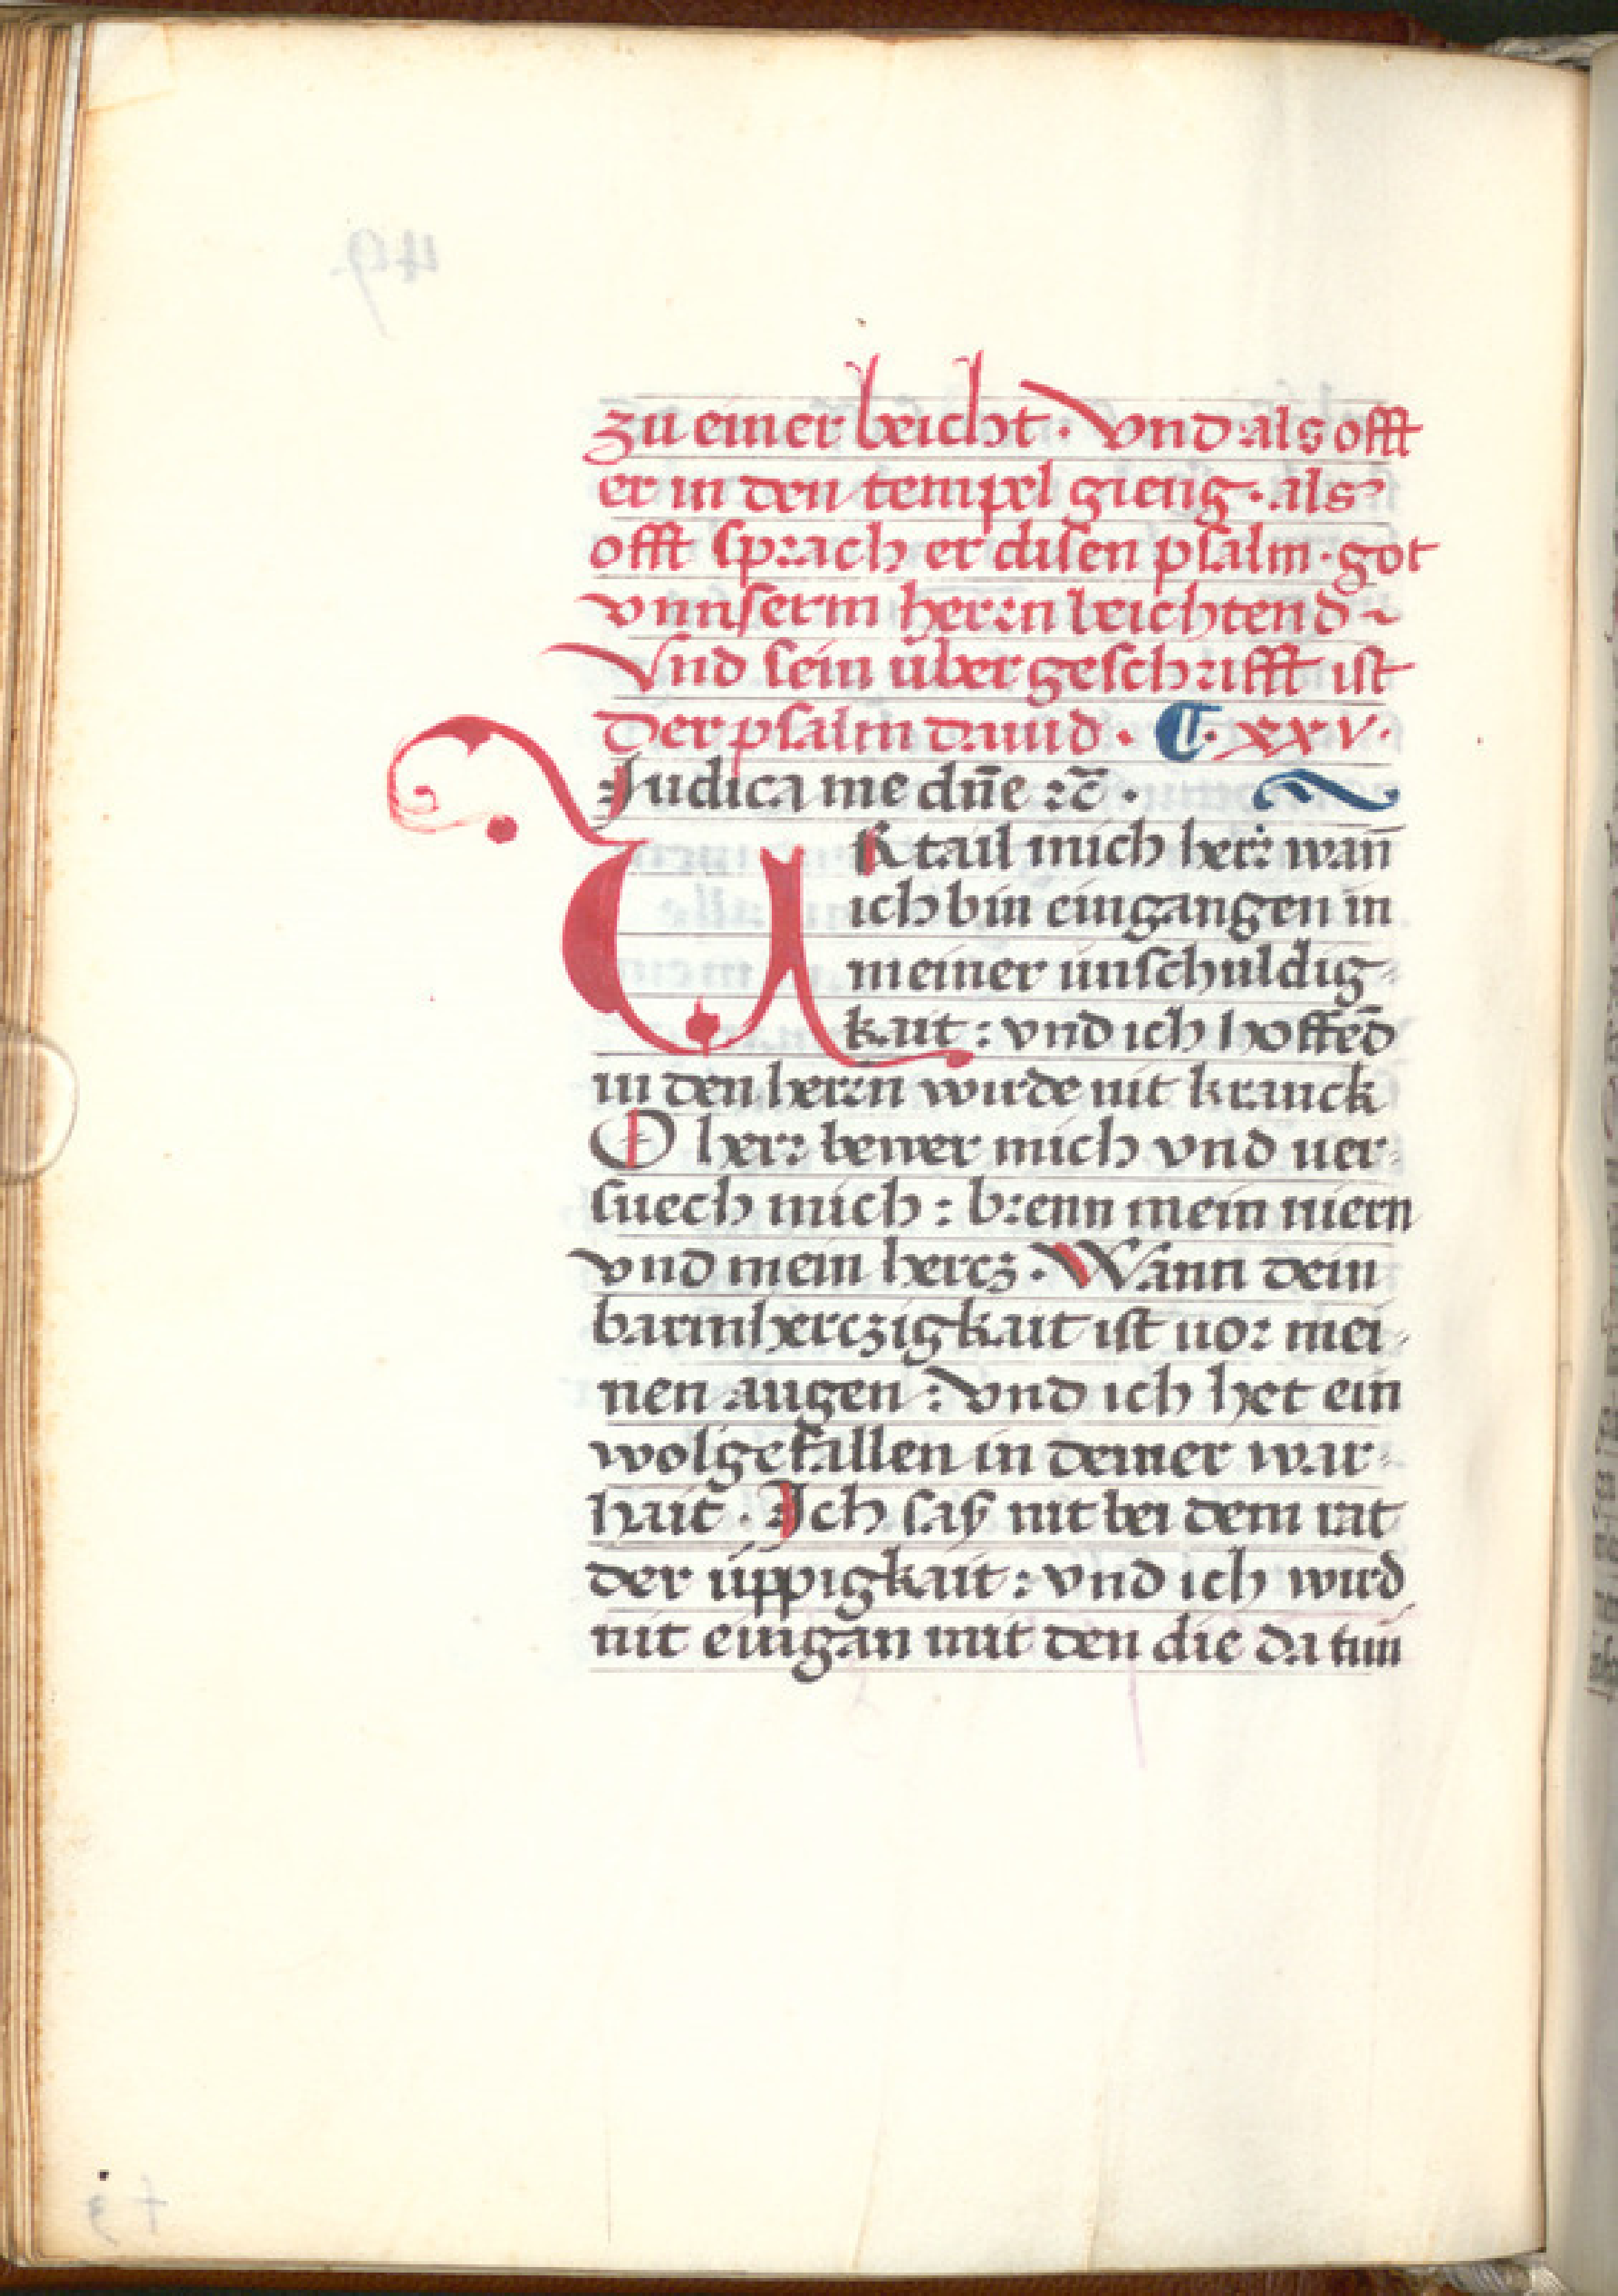 zu einer beicht · Vnd als offt
er in den tempel gieng · als
offt sprach er disen psalm · got
vnnserm herrn beichtend ~
Vnd sein übergeschrifft ist
Der psalm dauid · ¶ · xxv ·
Judica me dn̄e ⁊c̄ ·
URtail mich herr wan̄
ich bin eingangen in
meiner unschuldig-
kait : vnd ich hoffēd
in den herrn wirde nit kranck
O herr bewer mich vnd uer-
suech mich : brenn mein niern
vnd mein hercz · Wann dein
barmherczigkait ist uor mei-
nen augen : vnd ich het ein
wolgefallen in deiner war-
hait · Ich saß nit bei dem rat
der üppigkait : vnd ich wird
nit eingān mit den die da tun